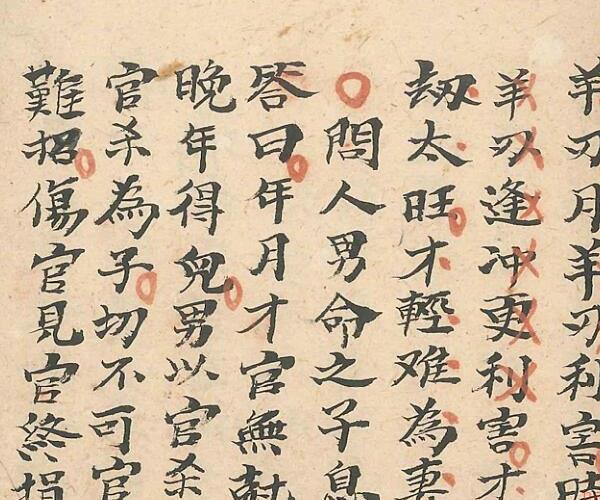 羊刃月羊刃利害時
羊刃逢冲更利害才
刼太旺才輕难為妻
問人男命之子息
答曰年月才官無
晚年得兒男以官杀
官杀為子切不可官
難招傷官見官終損